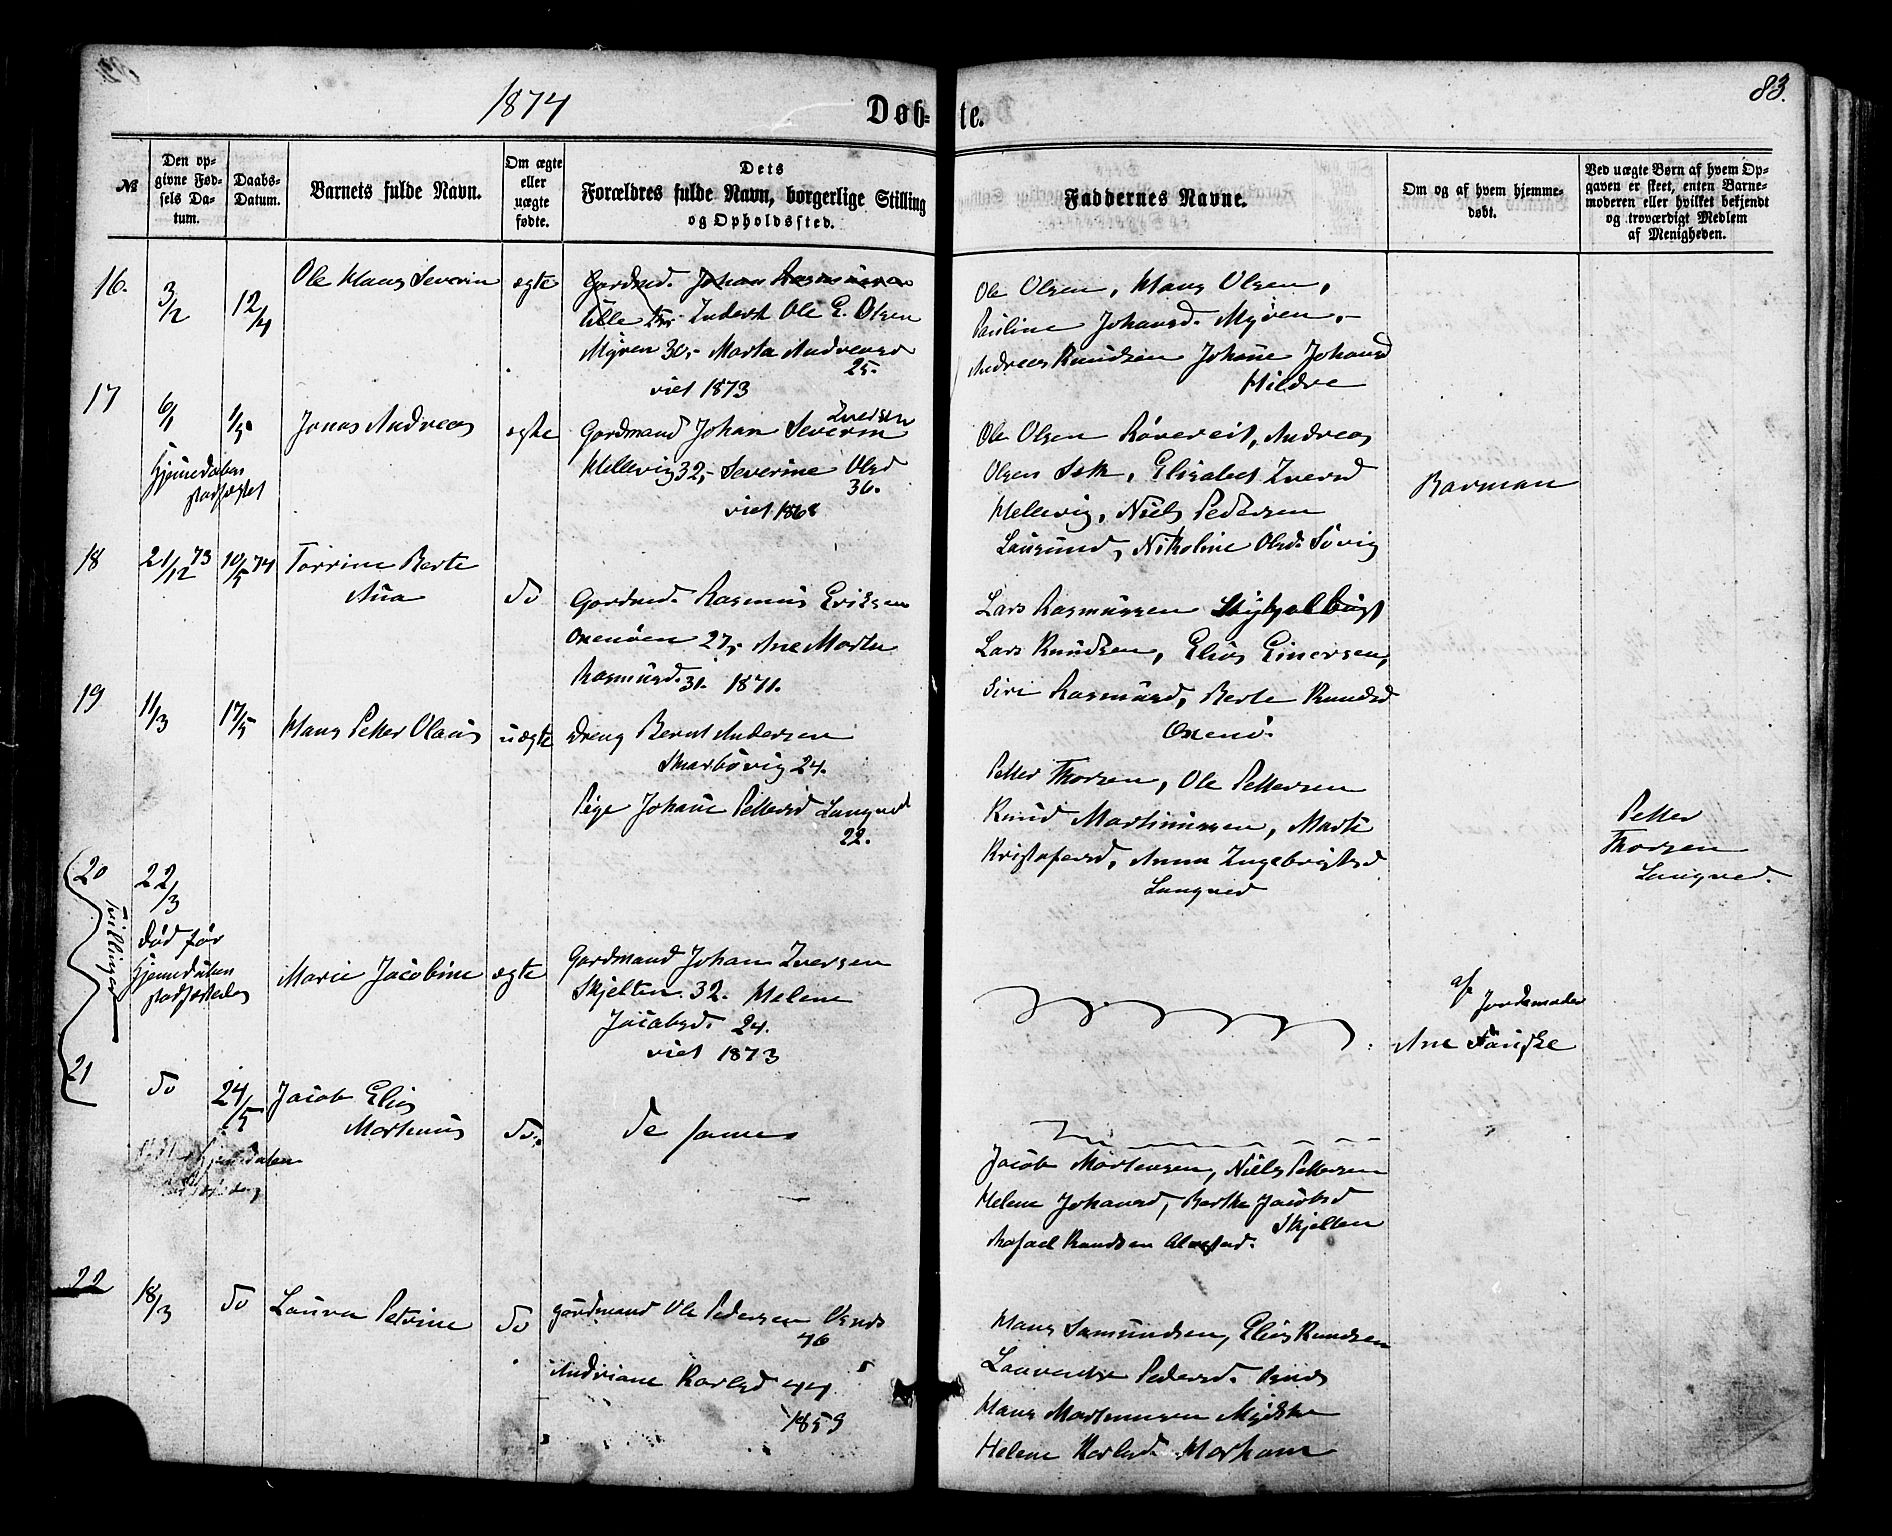 1874
Døb-
te.
83.
№
Den op-
givne Fød-
sels Da-
tum.
Daabs-
Datum.
Barnets fulde Navn.
Om ægte
eller
uægte
fødte.
Dets
Forældres fulde Navn, borgerlige Stilling
og Opholdssted.
Faddernes Navne.
Om og af hvem hjemme-
døbt.
Ved uægte Børn af hvem Op-
gaven er skeet, enten Barne-
moderen eller hvilket bekjendt
og troværdigt Medlem
af Menigheden.
16.
3/2
12/4
Ole Hans Severin
ægte
Gardmd. Johan Rasmusen
Inderst Ole E. Olsen
Myren 30,- Marta Andreasd
25.
viet 1873
Ole Olsen, Hans Olsen,
Pauline Johansd. Myren,-
Andreas Knudsen Johane Johansd
Hildre
17
6/1
1/5
Hjemedaaben
stadfæstet
Jonas Andreas
ægte
Gardmand Johan Severin
Iversen
Hellevig 32,- Severine Olsd
36.
viet 1868
Ole Olsen Røvereit, Andreas
Olsen, Elisabet Iversd
Hellevig, Niels Pedersen
Longund, Nikoline Olsd. Søvig
Barman
18
21/12 73
10/5 74
Torrine Berte
Ana
do
Gardmd. Rasmus Eriksen
Oxenøen 27,- Ane Marta
Rasmusd. 31. 1871.
Lars Rasmussen
Lars Knudsen, Elias Einersen,
Siri Rasmusd, Berte Knudsd
Oxenø.
19
11/3
17/5
Hans Petter Olaus
uægte
Dreng Bernt Andersen
Skarbøvig 24.
Pige Johane Pettersd Langved
22.
Petter Thorsen, Ole Pettersen
Knud Martinussen, Marte
Kristofersd, Anna Ingebrigtsd
Langved
Petter
Thorsen
Langved.
20
Tvillinger
22/3
Død før
Hjemedaaben
stadfæstedes
Marie Jacobine
ægte
Gardmand Johan Iversen
Skjelten 32. Helene
Jacobsd. 24.
viet 1873
af Jordemoder
Ane Fauske
21
do
24/5
Jacob Elias
Martinus
do.
De samme
Hjemdaaben
Jacob Mortensen, Niels Pettersen
Helene Johansd, Berthe Jacobsd
Skjelten
Rafael Knudsen Alvestad.
22
18/3
do
Laura Petrine
do
gardmand Ole Pedersen Uxnes
46
Andriane Karlsd 44
1853
Hans Samundsen, Elias Knudsen
Laurentse Pedersd.
Hans Martinussen
Helene Karlsd.